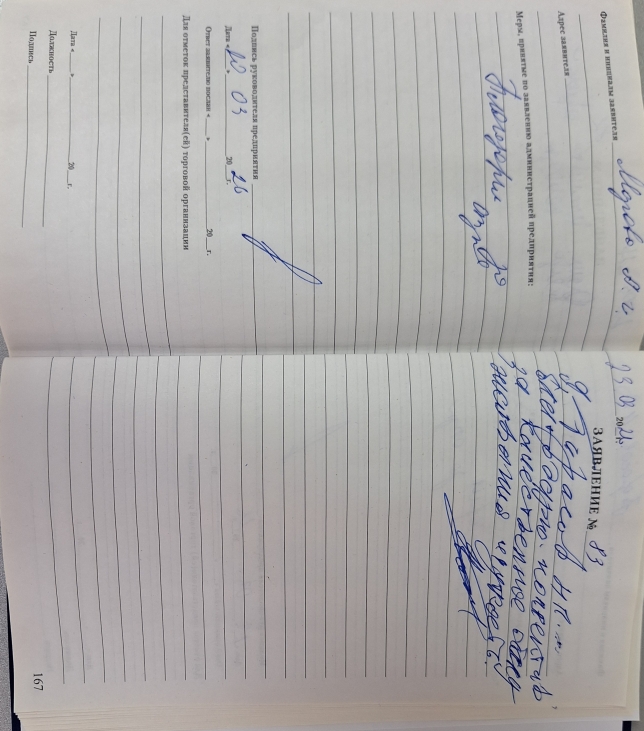 Фамилия и инициалы заявителя
Адрес заявителя
Меры, принятые по заявлению администрацией предприятия:
Благодарим за
отзыв
Подпись руководителя предприятия
Дата « » 03 20 26 г.
Ответ заявителю послан « » 20 г.
Для отметок представителя(ей) торговой организации
Дата « » 20 г.
Должность
Подпись
23 03 20 г.
ЗАЯВЛЕНИЕ № 83
Я Тарасов Н.П.
благодарю коллектив
за качественное обслу
живание и
167